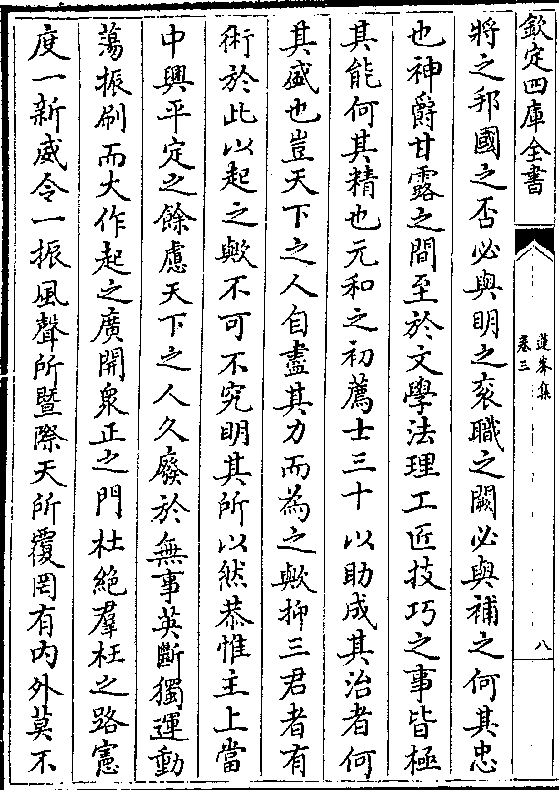 欽定四庫全書
蓮峯集
卷三
八
將之邦國之否必與明之衮職之闕必與補之何其忠
也神爵甘露之間至於文學法理工匠技巧之事皆極
其能何其精也元和之初薦士三十以助成其治者何
其盛也豈天下之人自盡其力而為之歟抑三君者有
術於此以起之歟不可不究明其所以然恭惟主上當
中興平定之餘慮天下之人久廢於無事英斷獨運動
蕩振刷而大作起之廣開衆正之門杜絶羣枉之路憲
度一新威令一振風聲所暨際天所覆罔有内外莫不